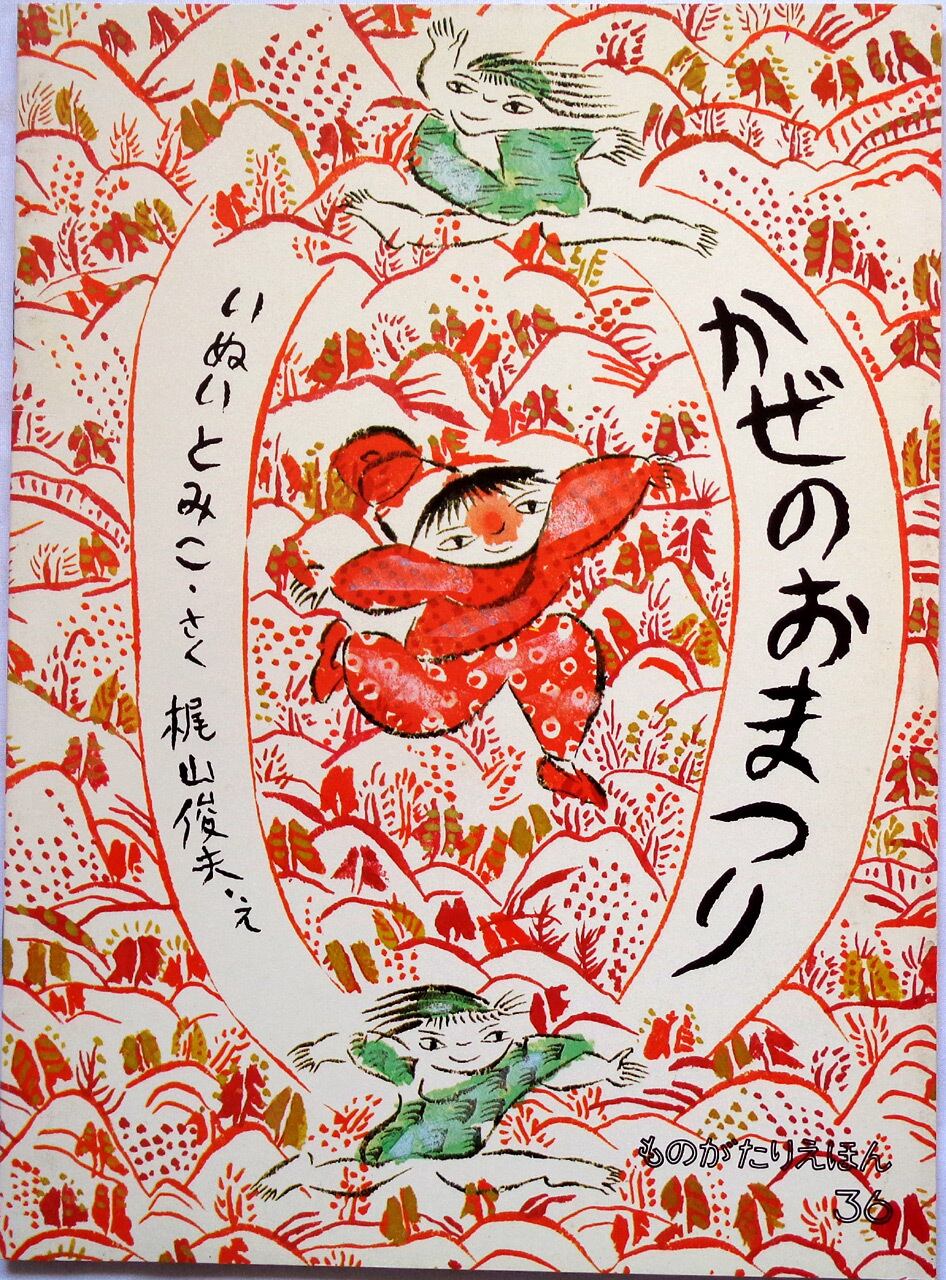 かぜのおまつり
いぬいとみこ・さく 梶山俊夫・え
ものがたりえほん
36